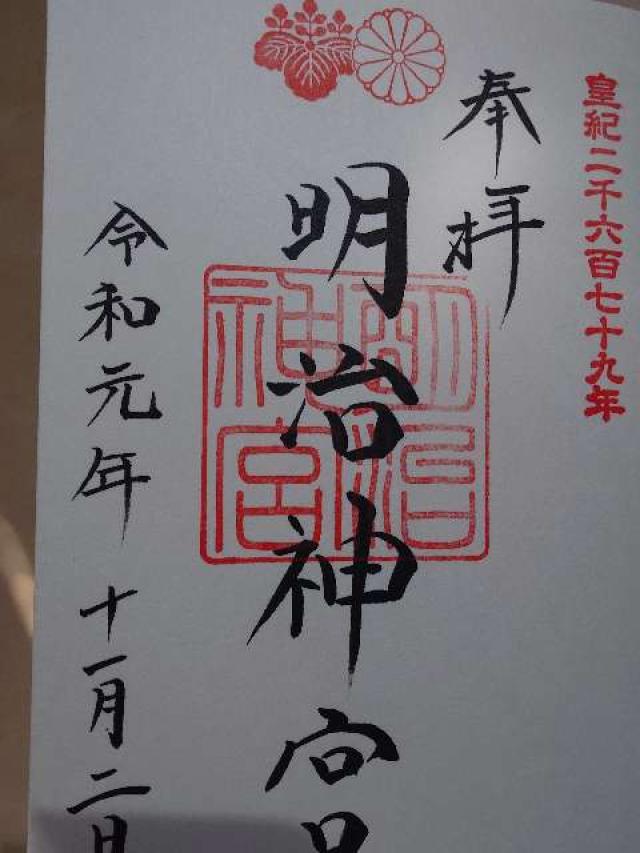 皇紀二千六百七十九年
奉拝
明治神宮
明治神宮
令和元年十一月二日